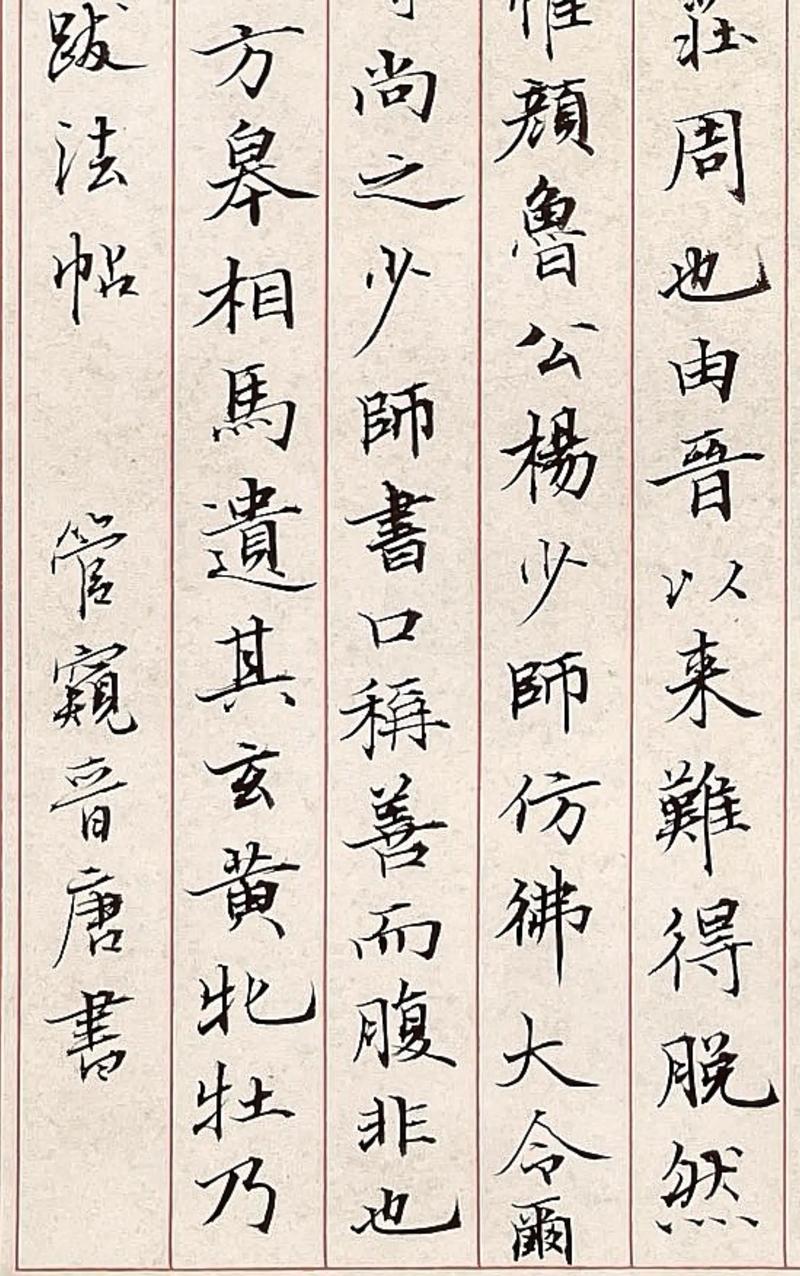 莊周也由晉以来難得脱然
惟顔魯公楊少師仿彿大令爾
尚之少師書口稱善而腹非也
方皋相馬遺其玄黄牝牡乃
跋法帖 管窺晉唐書